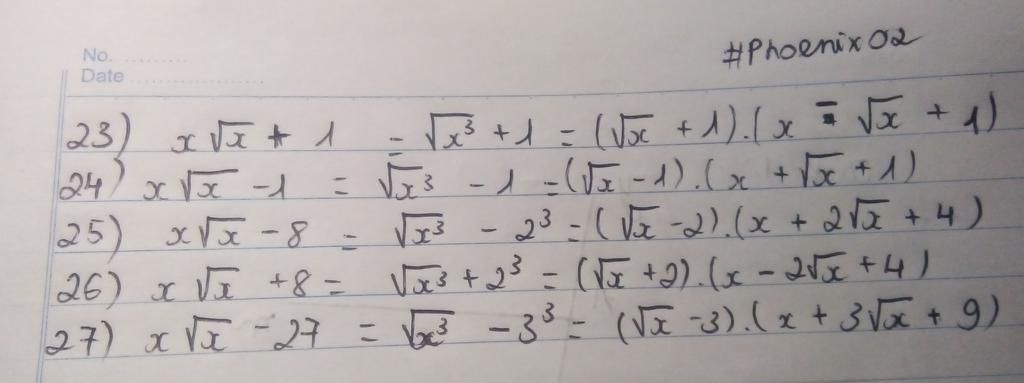 No. ..........
#Phoenix02
Date ......................
23) x√x + 1 = √x³ + 1 = (√x + 1).(x - √x + 1)
24) x√x - 1 = √x³ - 1 = (√x - 1).(x + √x + 1)
25) x√x - 8 = √x³ - 2³ = (√x - 2).(x + 2√x + 4)
26) x√x + 8 = √x³ + 2³ = (√x + 2).(x - 2√x + 4)
27) x√x - 27 = √x³ - 3³ = (√x - 3).(x + 3√x + 9)